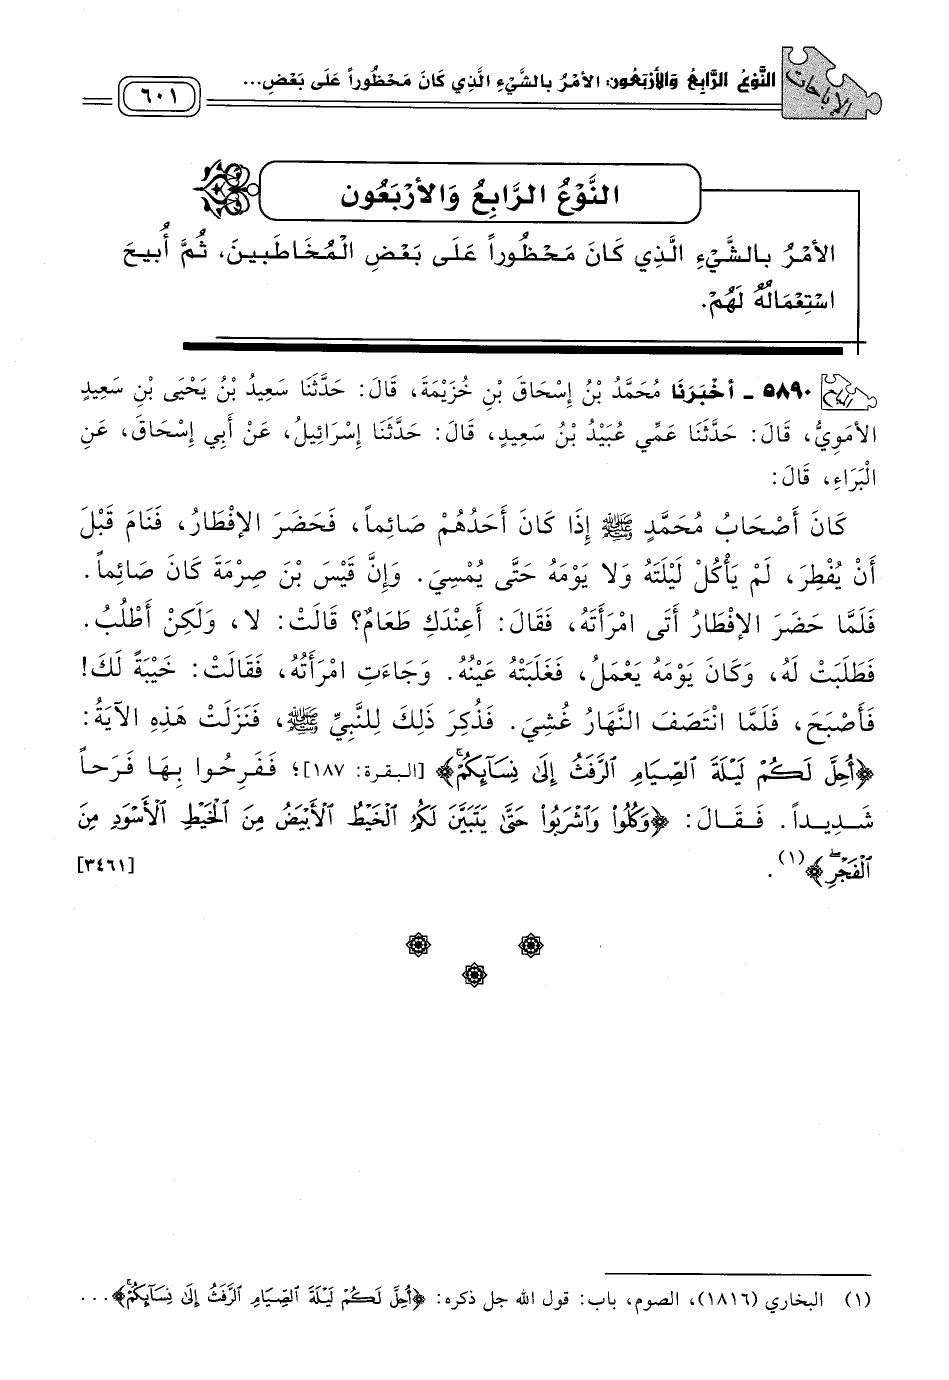 الإباحات
النَّوْعُ الرَّابِعُ وَالأَرْبَعُون: الأَمْرُ بِالشَّيْءِ الَّذِي كَانَ مَحْظُوراً عَلَى بَعْضِ...
٦٠١
النَّوْعُ الرَّابِعُ وَالأَرْبَعُون
الأَمْرُ بِالشَّيْءِ الَّذِي كَانَ مَحْظُوراً عَلَى بَعْضِ الْمُخَاطَبِينَ، ثُمَّ أُبِيحَ
اسْتِعْمَالُهُ لَهُمْ.
٥٨٩٠ - أَخْبَرَنَا مُحَمَّدُ بْنُ إِسْحَاقَ بْنِ خُزَيْمَةَ، قَالَ: حَدَّثَنَا سَعِيدُ بْنُ يَحْيَى بْنِ سَعِيدٍ
الأَمَوِيُّ، قَالَ: حَدَّثَنَا عَمِّي عُبَيْدُ بْنُ سَعِيدٍ، قَالَ: حَدَّثَنَا إِسْرَائِيلُ، عَنْ أَبِي إِسْحَاقَ، عَنِ
الْبَرَاءِ، قَالَ:
كَانَ أَصْحَابُ مُحَمَّدٍ ﷺ إِذَا كَانَ أَحَدُهُمْ صَائِماً، فَحَضَرَ الإِفْطَارُ، فَنَامَ قَبْلَ
أَنْ يُفْطِرَ، لَمْ يَأْكُلْ لَيْلَتَهُ وَلا يَوْمَهُ حَتَّى يُمْسِيَ. وَإِنَّ قَيْسَ بْنَ صِرْمَةَ كَانَ صَائِماً.
فَلَمَّا حَضَرَ الإِفْطَارُ أَتَى امْرَأَتَهُ، فَقَالَ: أَعِنْدَكِ طَعَامٌ؟ قَالَتْ: لا، وَلَكِنْ أَطْلُبُ.
فَطَلَبَتْ لَهُ، وَكَانَ يَوْمَهُ يَعْمَلُ، فَغَلَبَتْهُ عَيْنُهُ. وَجَاءَتِ امْرَأَتُهُ، فَقَالَتْ: خَيْبَةً لَكَ!
فَأَصْبَحَ، فَلَمَّا انْتَصَفَ النَّهَارُ غُشِيَ. فَذُكِرَ ذَلِكَ لِلنَّبِيِّ ﷺ، فَنَزَلَتْ هَذِهِ الآيَةُ:
﴿أُحِلَّ لَكُمْ لَيْلَةَ ٱلصِّيَامِ ٱلرَّفَثُ إِلَىٰ نِسَآئِكُمْ﴾ [البقرة: ١٨٧]؛ فَفَرِحُوا بِهَا فَرَحاً
شَدِيداً. فَقَالَ: ﴿وَكُلُوا۟ وَٱشْرَبُوا۟ حَتَّىٰ يَتَبَيَّنَ لَكُمُ ٱلْخَيْطُ ٱلْأَبْيَضُ مِنَ ٱلْخَيْطِ ٱلْأَسْوَدِ مِنَ
ٱلْفَجْرِ﴾(١). [٣٤٦١]
(١) البخاري (١٨١٦)، الصوم، باب: قول الله جل ذكره: ﴿أُحِلَّ لَكُمْ لَيْلَةَ ٱلصِّيَامِ ٱلرَّفَثُ إِلَىٰ نِسَآئِكُمْ﴾...